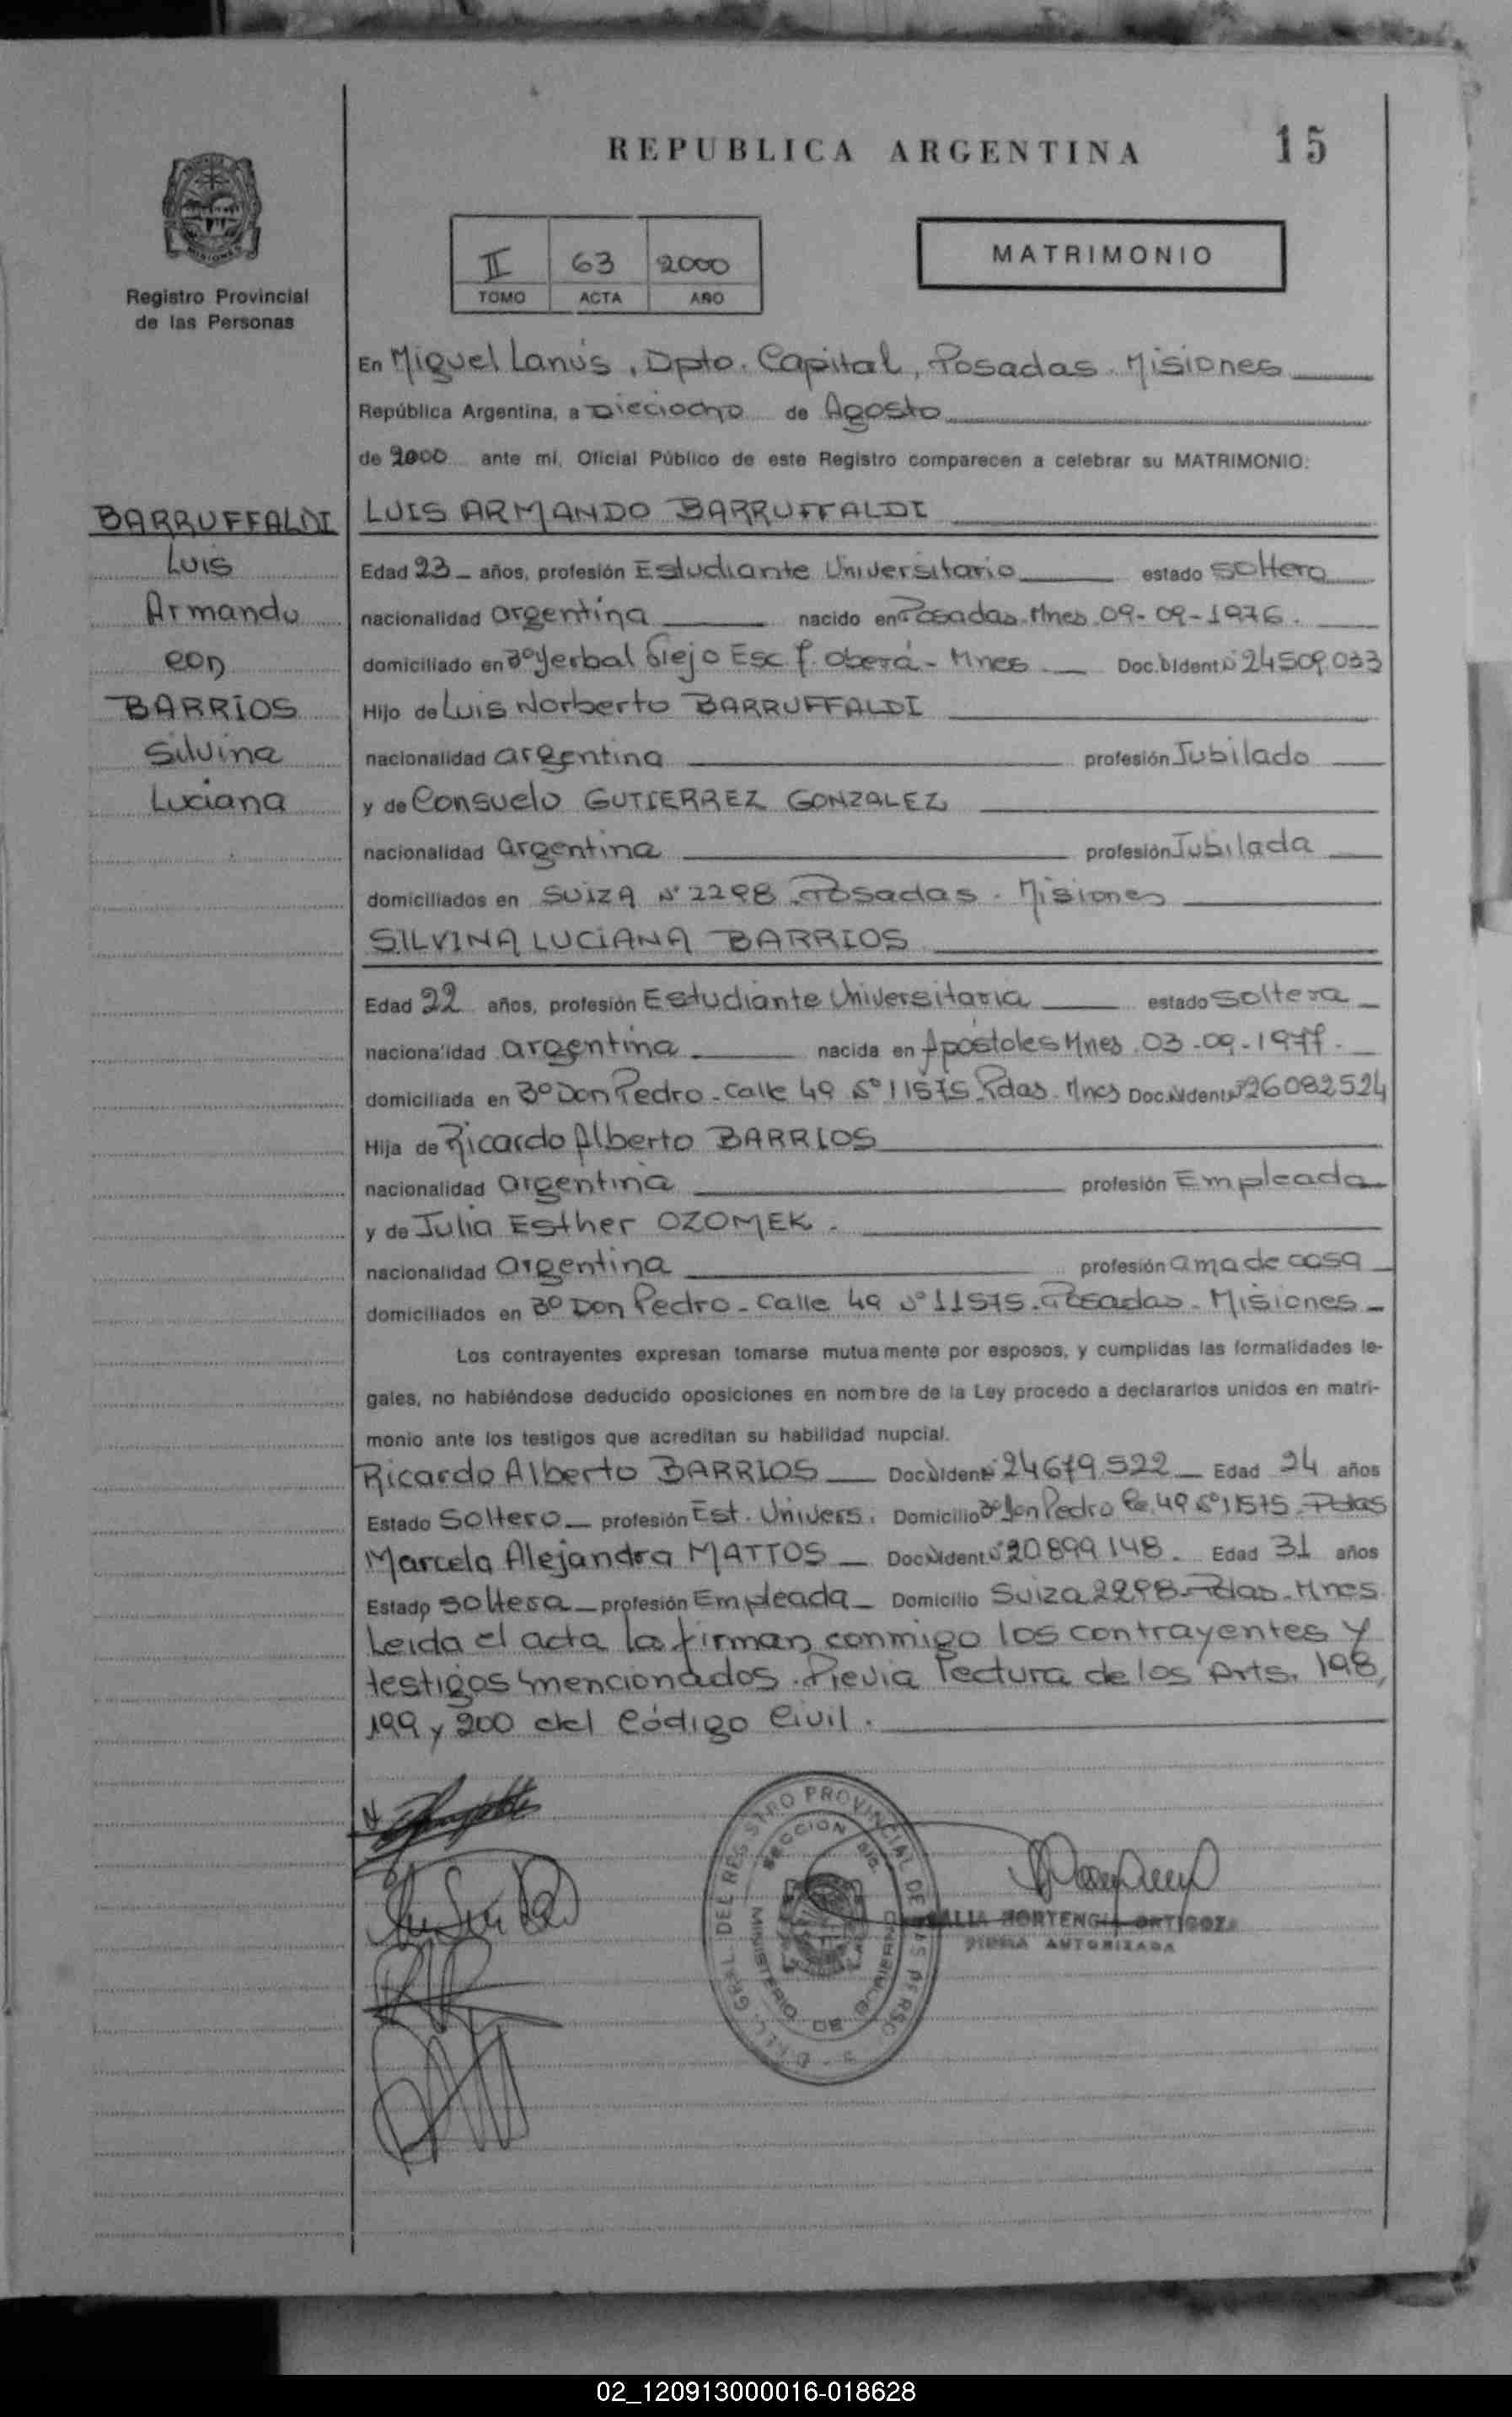 REPUBLICA ARGENTINA 15
II 63 2000
TOMO ACTA AÑO
MATRIMONIO
Registro Provincial
de las Personas
En Miguel Lanús, Dpto. Capital, Posadas. Misiones
República Argentina, a Dieciocho de Agosto
de 2000 ante mí, Oficial Público de este Registro comparecen a celebrar su MATRIMONIO:
BARRUFFALDI
Luis
Armando
con
BARRIOS
Silvina
Luciana
LUIS ARMANDO BARRUFFALDI
Edad 23 años, profesión Estudiante Universitario estado soltero
nacionalidad argentina nacido en Posadas. Mnes. 09-09-1976.
domiciliado en Bº Yerbal Viejo Esc. Oberá - Mnes. Doc. Ident. Nº 24509.033
Hijo de Luis Norberto BARRUFFALDI
nacionalidad argentina profesión Jubilado
y de Consuelo GUTIERREZ GONZALEZ
nacionalidad argentina profesión Jubilada
domiciliados en SUIZA Nº 2298 Posadas. Misiones
SILVINA LUCIANA BARRIOS
Edad 22 años, profesión Estudiante Universitaria estado soltera
nacionalidad argentina nacida en Apóstoles Mnes. 03-09-1977.
domiciliada en Bº Don Pedro - Calle 49 Nº 11575 Pdas. Mnes Doc. Ident. Nº 26082524
Hija de Ricardo Alberto BARRIOS
nacionalidad argentina profesión Empleado
y de Julia Esther OZOMEK.
nacionalidad argentina profesión ama de casa
domiciliados en Bº Don Pedro - Calle 49 Nº 11575. Posadas - Misiones
Los contrayentes expresan tomarse mutuamente por esposos, y cumplidas las formalidades le-
gales, no habiéndose deducido oposiciones en nombre de la Ley procedo a declararlos unidos en matri-
monio ante los testigos que acreditan su habilidad nupcial.
Ricardo Alberto BARRIOS Doc. Ident. Nº 24679.522 Edad 24 años
Estado Soltero profesión Est. Univers. Domicilio Bº Don Pedro Ce. 49 Nº 11575 - Pdas
Marcela Alejandra MATTOS Doc. Ident. Nº 20.899.148. Edad 31 años
Estado soltera profesión Empleada Domicilio Suiza 2298 - Pdas. Mnes
Leída el acta la firman conmigo los contrayentes y
testigos mencionados. Previa lectura de los Arts. 198,
199 y 200 del Código Civil.
DEL REGISTRO PROVINCIAL DE LAS PERSO
MINISTERIO DE GOBIERNO
HORTENCIA ORTIGOZA
FIRMA AUTORIZADA
02_120913000016-018628